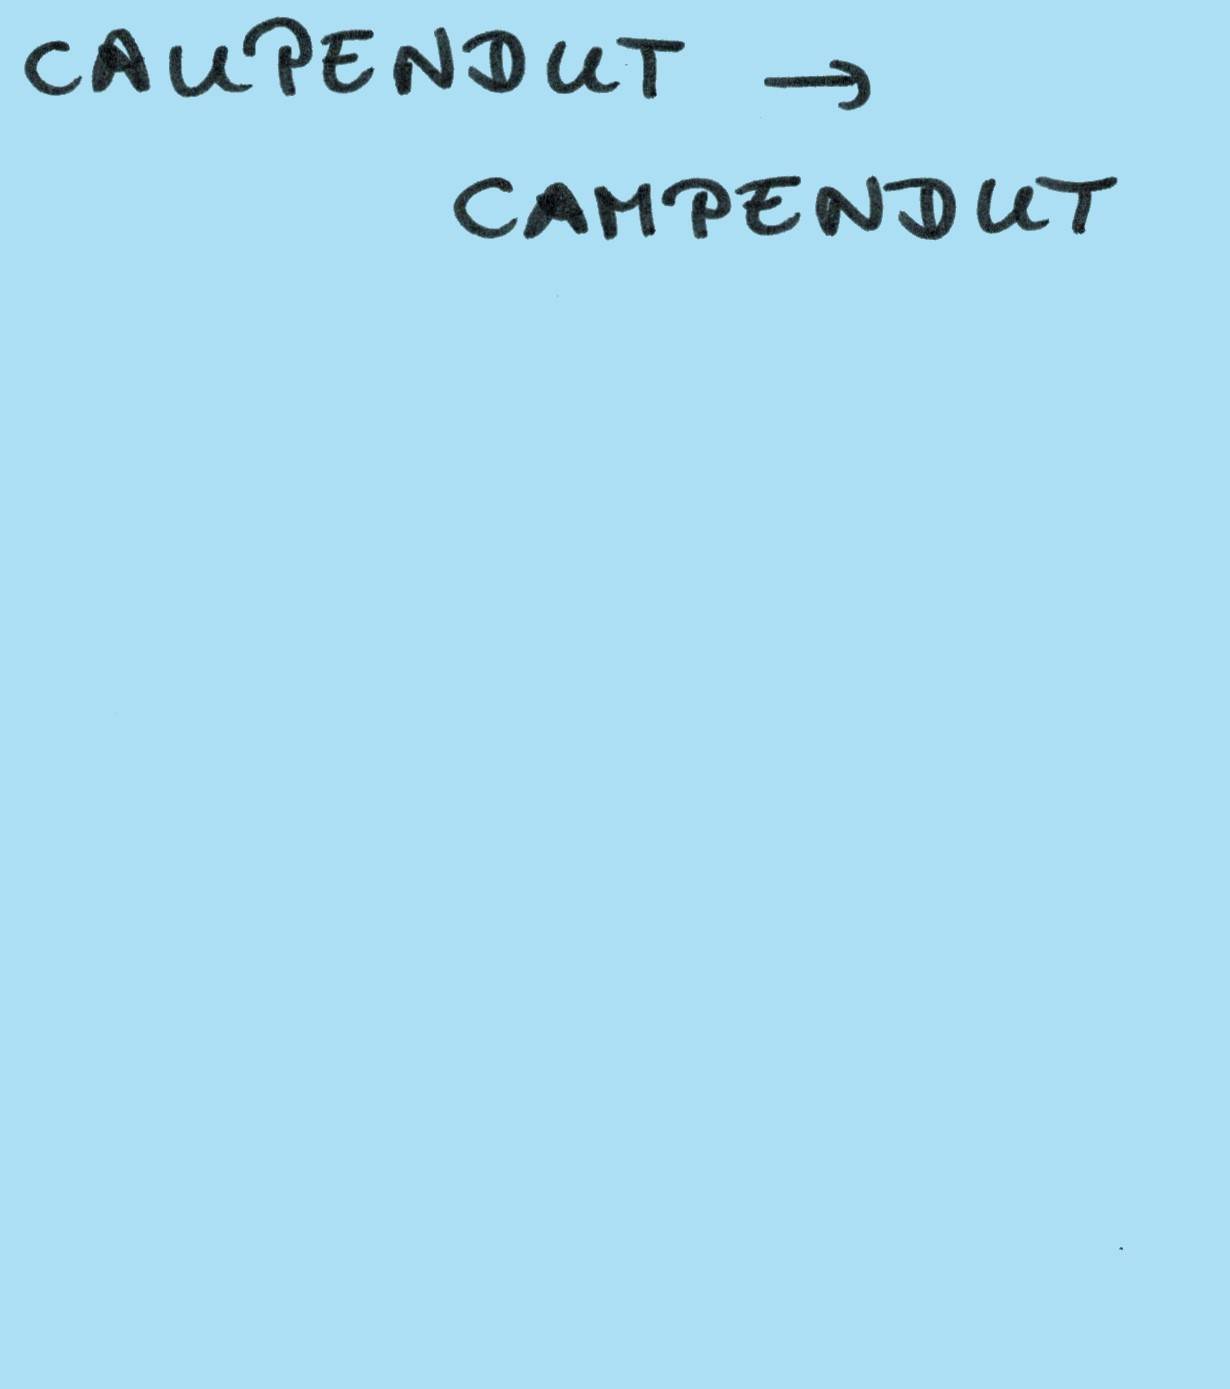 CAUPENDUT →
CAMPENDUT